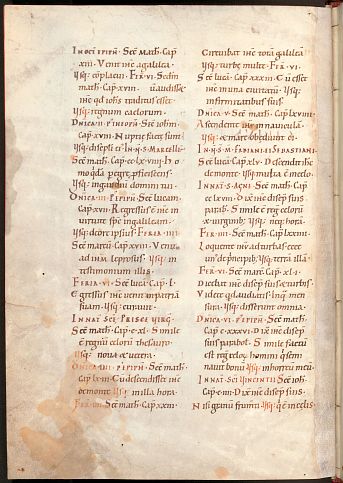 IN OCT EPIPH̅. Sec̅ math̅. Cap̅
xiii. Venit ihc̅ a galilea.
Usq; co̅placui. Fr̅a. vi. Secd̅m
math̅. Cap̅ xviii. audisse
ihc̅ qd ioh̅s traditus esset
Usq; regnum caelorum.
D̅nica. ii. p̅ epiph̅. Sec̅d ioh̅m
cap̅. xviii. Nuptiae factae sunt
Usq; discipuli ei. IN N̅. S̅. Marcelli.
Sec̅ math̅. Cap̅. cclxviiii. Ho
mo qda̅ peregre p̅ficiscens
Usq; in gaudiu̅ domini tui.
D̅nica. iii. p̅ epiph̅. Sec̅ lucam.
Cap̅. xvii. Regressus e̅ ihc̅ in
uirtute sp̅s in galilaeam
Usq; de ore ipsius. Feria. iiii.
Sec̅ marcu̅. Cap̅ xviii. Venit
ad ih̅m leprosus. Usq; in
testimonium illis.
Feria. vi. Sec̅ luca̅. Cap̅. l.
Egressus ihc̅ uenit in patria̅
suam. Usq; curauit.
In nat̅ sc̅e Prisce uirg̅.
Sec̅ math̅. Cap̅. cxl. Simile
e̅ regnu̅ caeloru̅ thesauro
Usq; noua et uetera.
D̅nica. iiii. p̅ epiph̅. Sec̅ math̅.
cap̅. lxiii. Cu̅ descendisset ihc̅
de monte. Usq; in illa hora.
Fer̅. iiii. Sec̅ math̅. Cap̅. xxiii.
Circuibat ihc̅ tota̅ galilea̅
Usq; turbae multae. Fr̅a. vi.
Sec̅ luca̅. Cap̅. xxxiii. Cu̅ esset
ihc̅ in una ciuitatu̅. Usq;
infirmitatibus suis.
D̅nica. v. Sec̅ math̅. Cap̅. lxviiii.
Ascendente ihu̅ in nauicula̅.
Usq; et mare obediunt ei.
IN N̅. S̅. M̅. Fabiani et Sebastiani
Sec̅ luca̅. Cap̅. xlv. Descendit ihc̅
de monte. Usq; multa e̅ in celo.
In nat̅ S. Agn̅. Sec̅ math̅. Cap̅.
cclxviii. Dix̅ ihc̅ discip̅. suis
parab̅. Simile e̅ reg̅ celoru̅
x uirginib;. Usq; neq; hora̅.
Fer̅. iiii. Sec̅ math̅. Cap̅. cxxiii.
Loquente ihu̅ ad turbas ecce
un' de principib;. Usq; terra̅ illa̅.
Fr̅a. vi. Sec̅ marc̅. Cap̅. xli.
Dicebat ihc̅ discip̅. suis et turbis.
Videte quid audiatis. In q̅ men
sura. Usq; disserebat omnia.
D̅nica. vi. p̅ epiph̅. Sec̅ math̅.
Cap̅. cxxxvi. Dix̅ ihc̅ discip̅.
suis parabol̅. Simile factu̅
est regn̅ celoru̅ homini q̅ semi
nauit bonu̅. Usq; in horreu̅ meu̅.
In nat̅ sc̅i Vincentii. Sec̅ ioh̅.
Cap̅. ciiii. Dix̅ ihc̅ discip̅. suis.
Nisi granu̅ frumti̅. Usq; q̅ e̅ in celis.